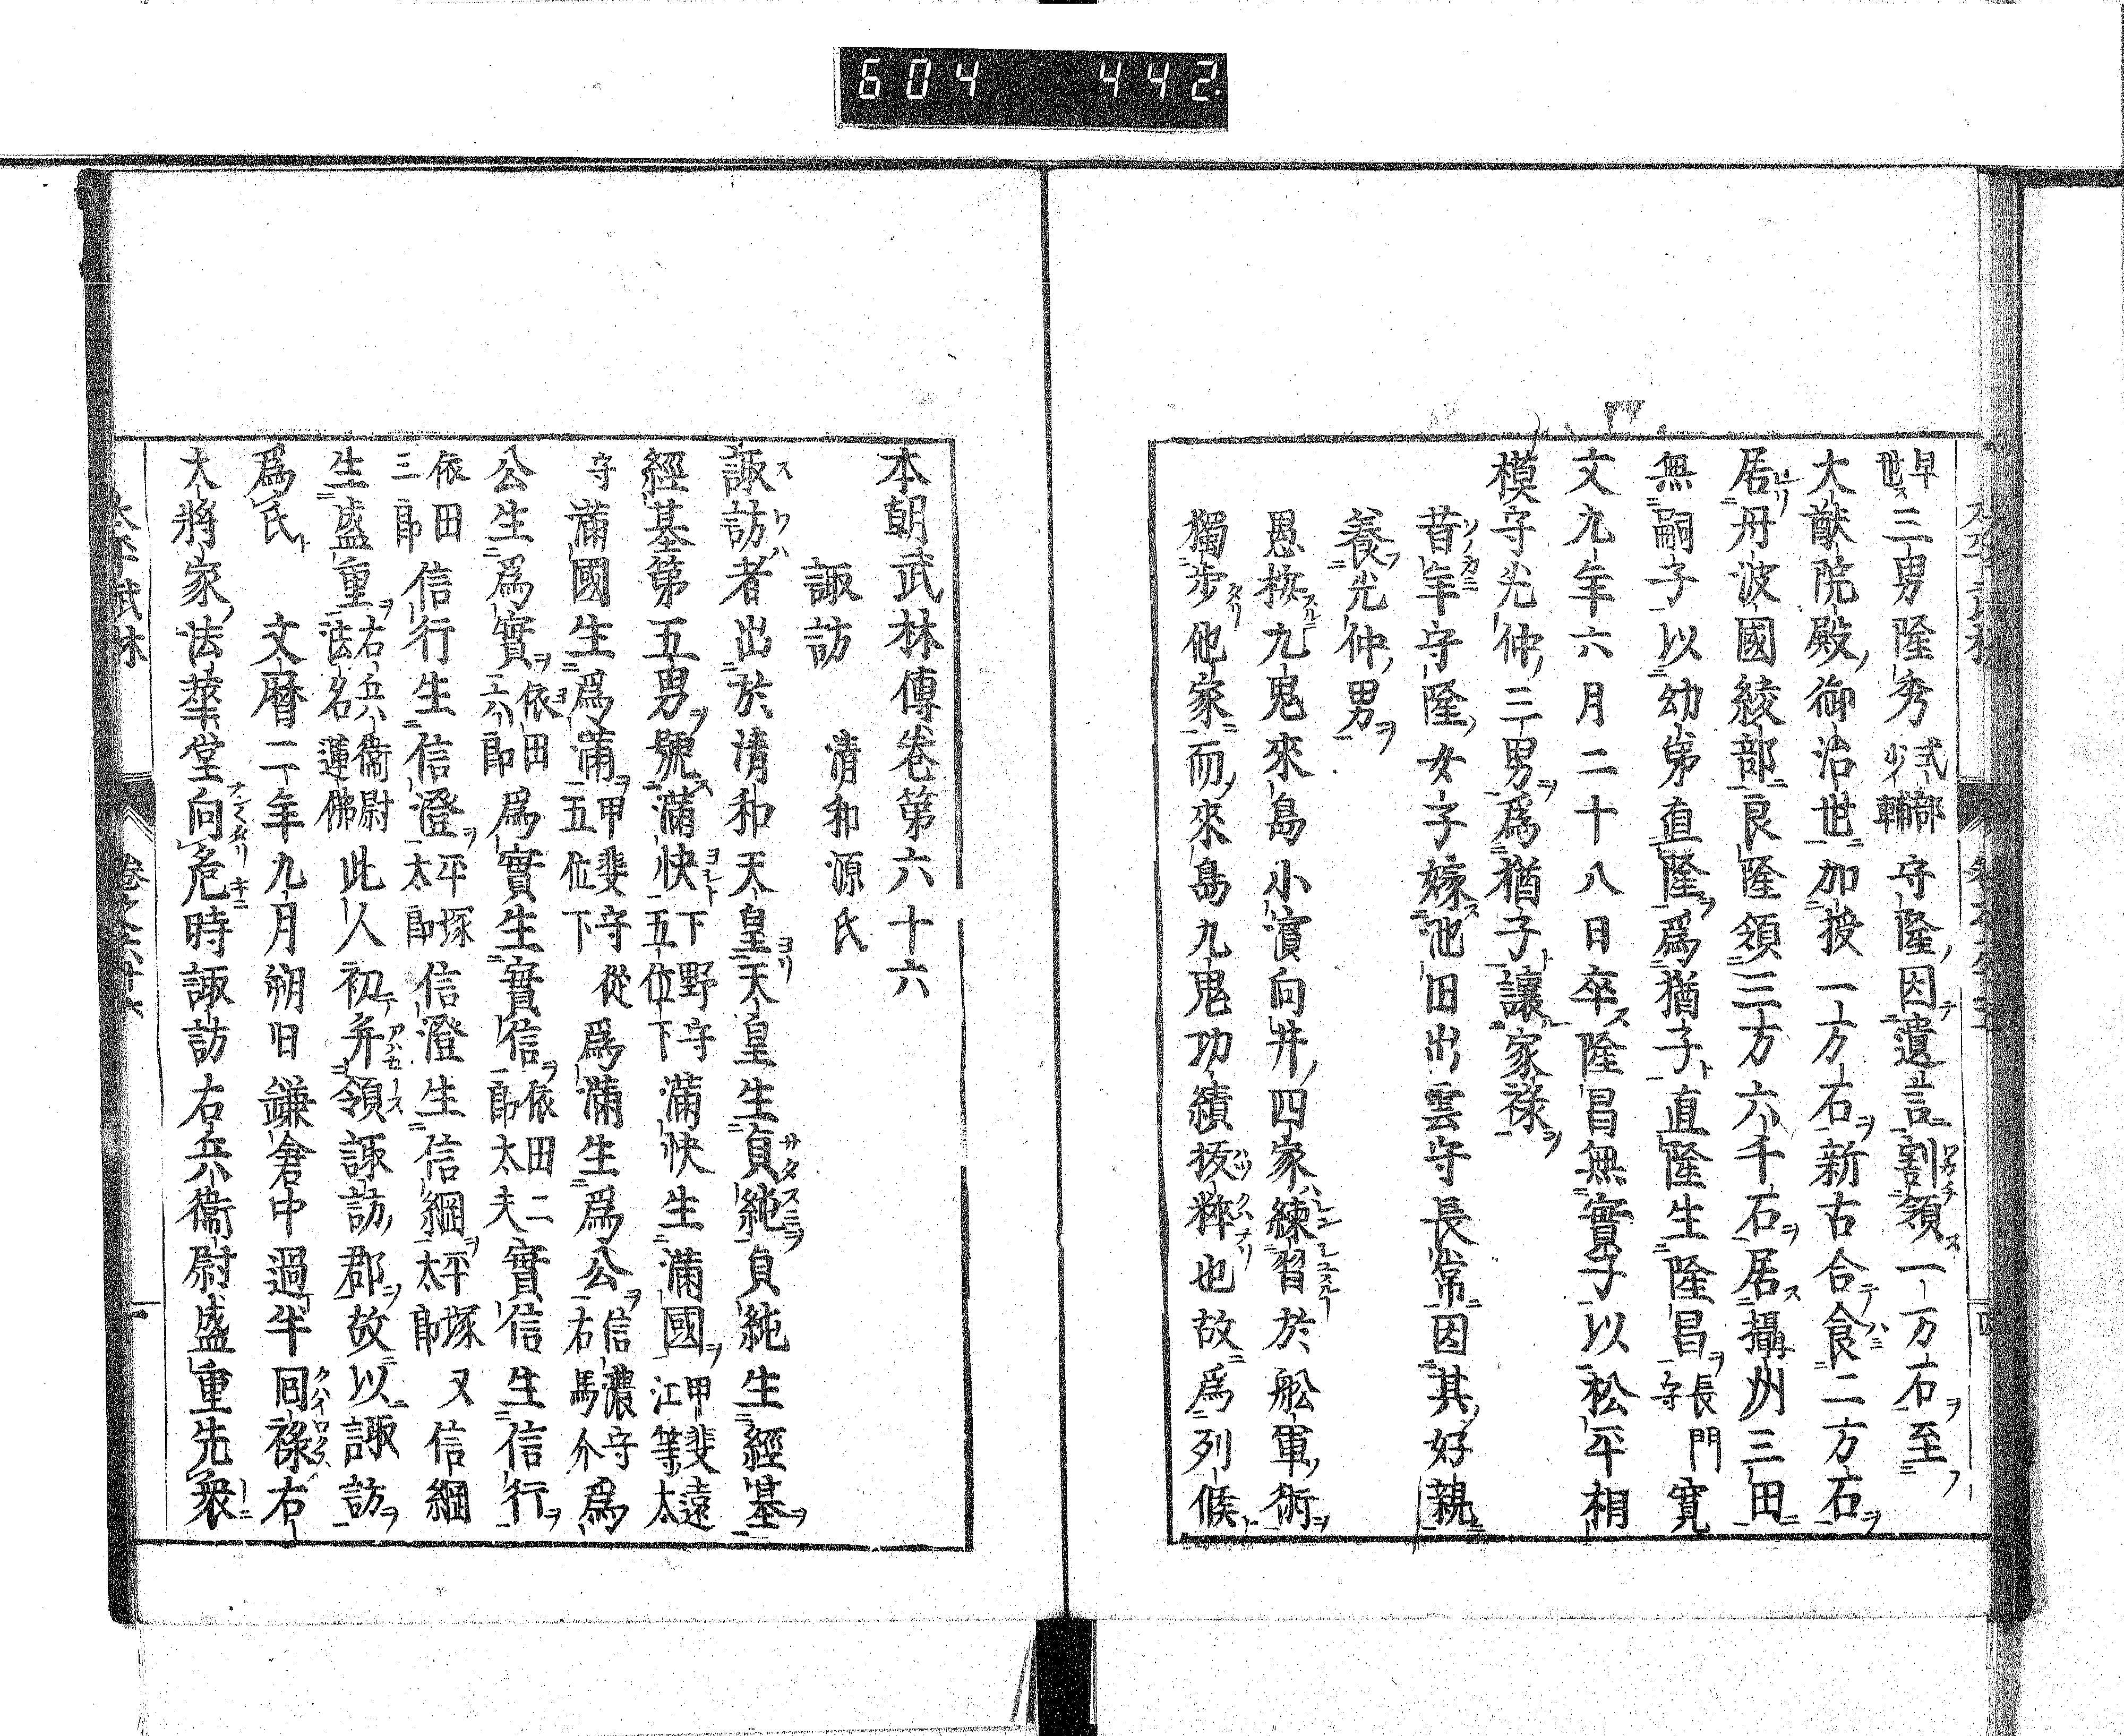 604 442
早世三男隆秀式部少輔守隆因遺言割領一万石至
大猷院殿御治世加授一万石新古合食二万石
居丹波國綾部良隆領三万六千石居攝州三田
無嗣子以幼弟直隆爲猶子直隆生隆昌長門守寛
文九年六月二十八日卒隆昌無實子以松平相
模守光仲三男爲猶子讓家祿
昔年守隆女子嫁池田出雲守長常因其好親
養光仲男
愚按九鬼來島小濵向井四家練習於舩軍術
獨步他家而來島九鬼功績拔粹也故爲列候
本朝武林傳卷第六十六
諏訪 清和源氏
諏訪者出於清和天皇天皇生貞純貞純生經基
經基第五男號滿快下野守五位下滿快生滿國甲斐遠江等太
守滿國生爲滿甲斐守從五位下爲滿生爲公信濃守右馬介爲
公生爲實依田六郎爲實生實信依田二郎太夫實信生信行
依田三郎信行生信澄平塚太郎信澄生信綱平塚太郎又信綱
生盛重右兵衞尉法名蓮佛此人初并領諏訪郡故以諏訪
爲氏 文暦二年九月朔日鎌倉中過半同祿右
大將家法華堂向危時諏訪右兵衞尉盛重先衆